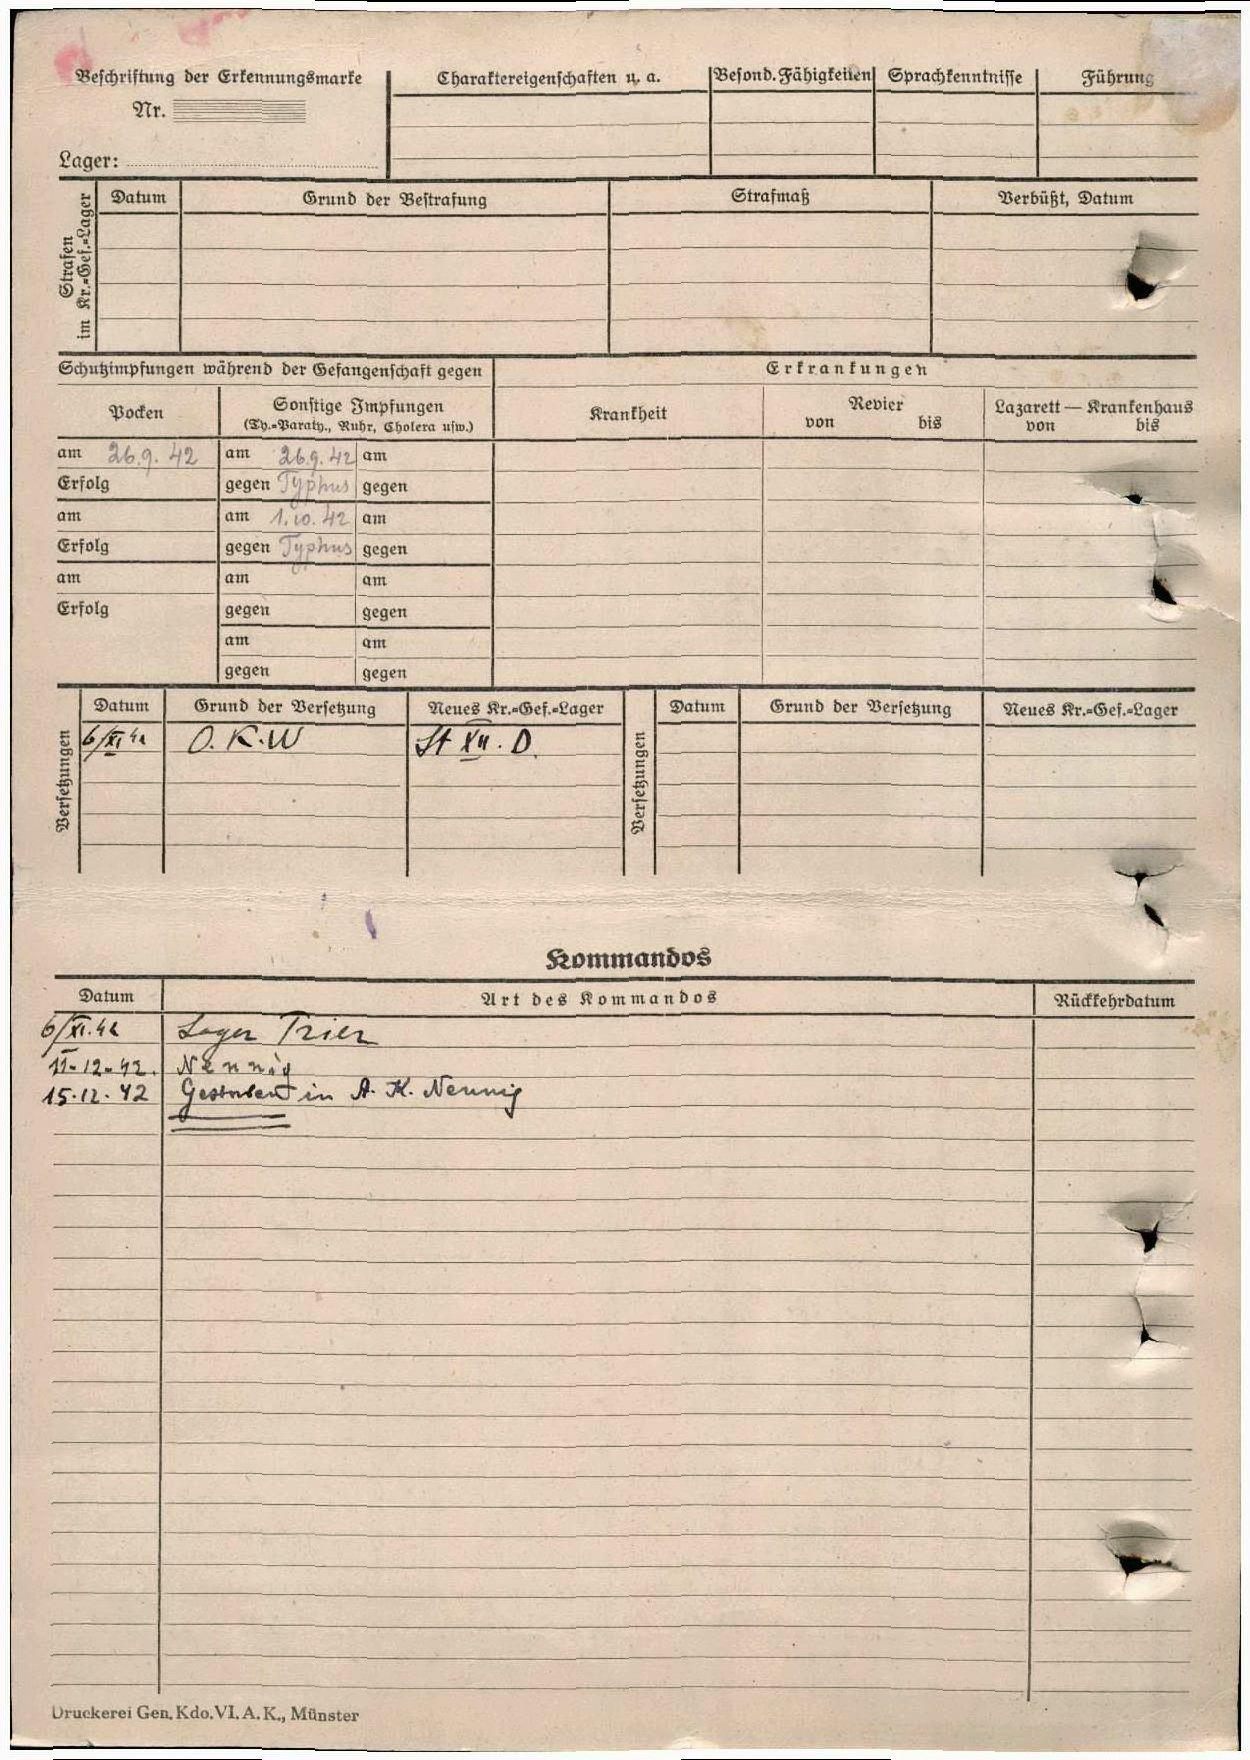 Beschriftung der Erkennungsmarke
Nr.
Lager:
Charaktereigenschaften u. a.
Besond. Fähigkeiten
Sprachkenntnisse
Führung
Strafen im Kr.=Gef.=Lager
Datum
Grund der Bestrafung
Strafmaß
Verbüßt, Datum
Schutzimpfungen während der Gefangenschaft gegen
Erkrankungen
Pocken
Sonstige Impfungen
(Ty.=Paraty., Ruhr, Cholera usw.)
Krankheit
Revier
von bis
Lazarett — Krankenhaus
von bis
am 26.9.42 am 26.9.42 am
Erfolg gegen Typhus gegen
am am 1.10.42 am
Erfolg gegen Typhus gegen
am am am
Erfolg gegen gegen
am am
gegen gegen
Versetzungen
Datum Grund der Versetzung Neues Kr.=Gef.=Lager
6/XI 42 O.K.W St XII. D.
Versetzungen
Datum Grund der Versetzung Neues Kr.=Gef.=Lager
Kommandos
Datum Art des Kommandos Rückkehrdatum
6/XI.42 Lager Trier
11-12-42. Nennig
15.12.42 Gestorben in A. K. Nennig
Druckerei Gen. Kdo. VI. A. K., Münster